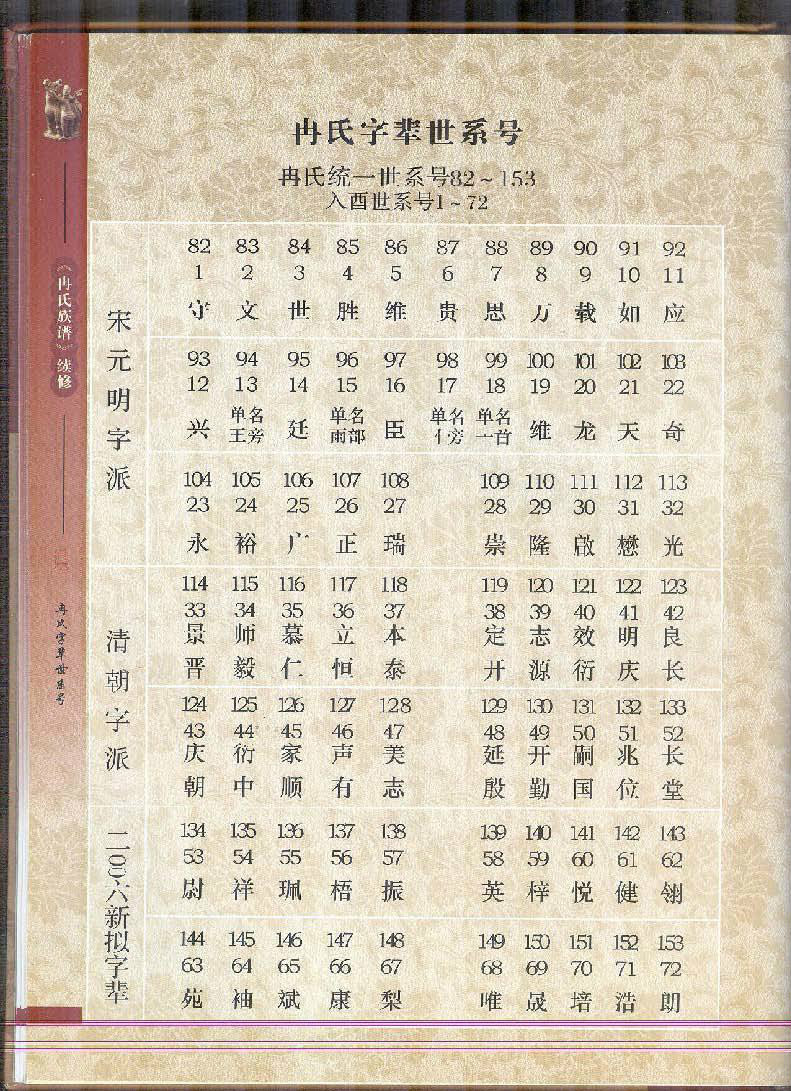 冉氏字辈世系号
冉氏统一世系号82～153
入酉世系号1～72
《冉氏族谱》续修
冉氏字辈世系号
宋元明字派
82 83 84 85 86 87 88 89 90 91 92
1 2 3 4 5 6 7 8 9 10 11
守 文 世 胜 维 贵 思 万 载 如 应
93 94 95 96 97 98 99 100 101 102 103
12 13 14 15 16 17 18 19 20 21 22
兴 单名王旁 廷 单名雨部 臣 单名亻旁 单名一首 维 龙 天 奇
104 105 106 107 108 109 110 111 112 113
23 24 25 26 27 28 29 30 31 32
永 裕 广 正 瑞 崇 隆 啟 懋 光
清朝字派
114 115 116 117 118 119 120 121 122 123
33 34 35 36 37 38 39 40 41 42
景 师 慕 立 本 定 志 效 明 良
晋 毅 仁 恒 泰 开 源 衍 庆 长
124 125 126 127 128 129 130 131 132 133
43 44 45 46 47 48 49 50 51 52
庆 衍 家 声 美 延 开 嗣 兆 长
朝 中 顺 有 志 殷 勤 国 位 堂
二〇〇六新拟字辈
134 135 136 137 138 139 140 141 142 143
53 54 55 56 57 58 59 60 61 62
尉 祥 珮 梧 振 英 梓 悦 健 翎
144 145 146 147 148 149 150 151 152 153
63 64 65 66 67 68 69 70 71 72
苑 袖 斌 康 梨 唯 晟 培 浩 朗